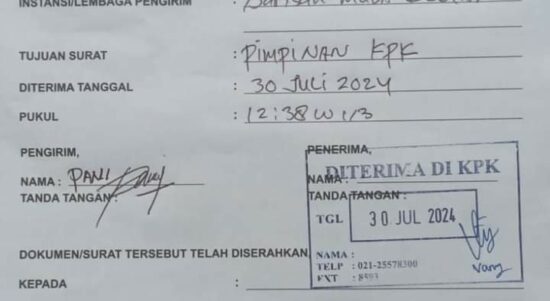 INSTANSI/LEMBAGA PENGIRIM :
TUJUAN SURAT : PIMPINAN KPK
DITERIMA TANGGAL : 30 JULI 2024
PUKUL : 12:38 WIB
PENGIRIM,
NAMA : PANI
TANDA TANGAN :
PENERIMA,
DITERIMA DI KPK
NAMA :
TANDA TANGAN :
TGL 30 JUL 2024
DOKUMEN/SURAT TERSEBUT TELAH DISERAHKAN
NAMA :
TELP : 021-25578300
EXT :
KEPADA :